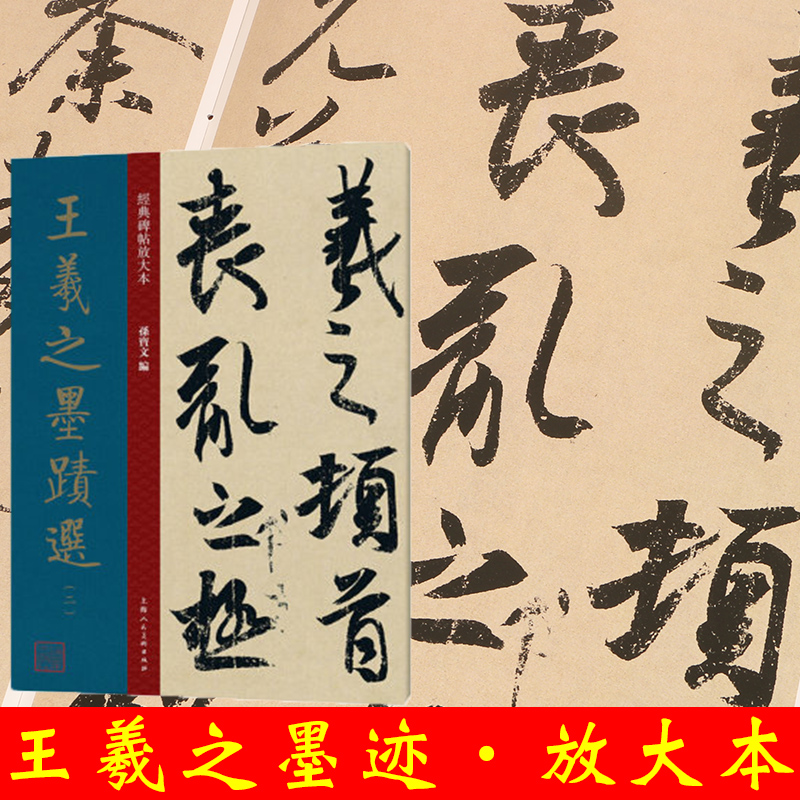 羲之頓
喪亂之
先
荼
王羲之墨蹟選（二）
經典碑帖放大本
孫寶文 編
上海人民美術出版社
羲之頓首
喪亂之極
王羲之墨迹·放大本